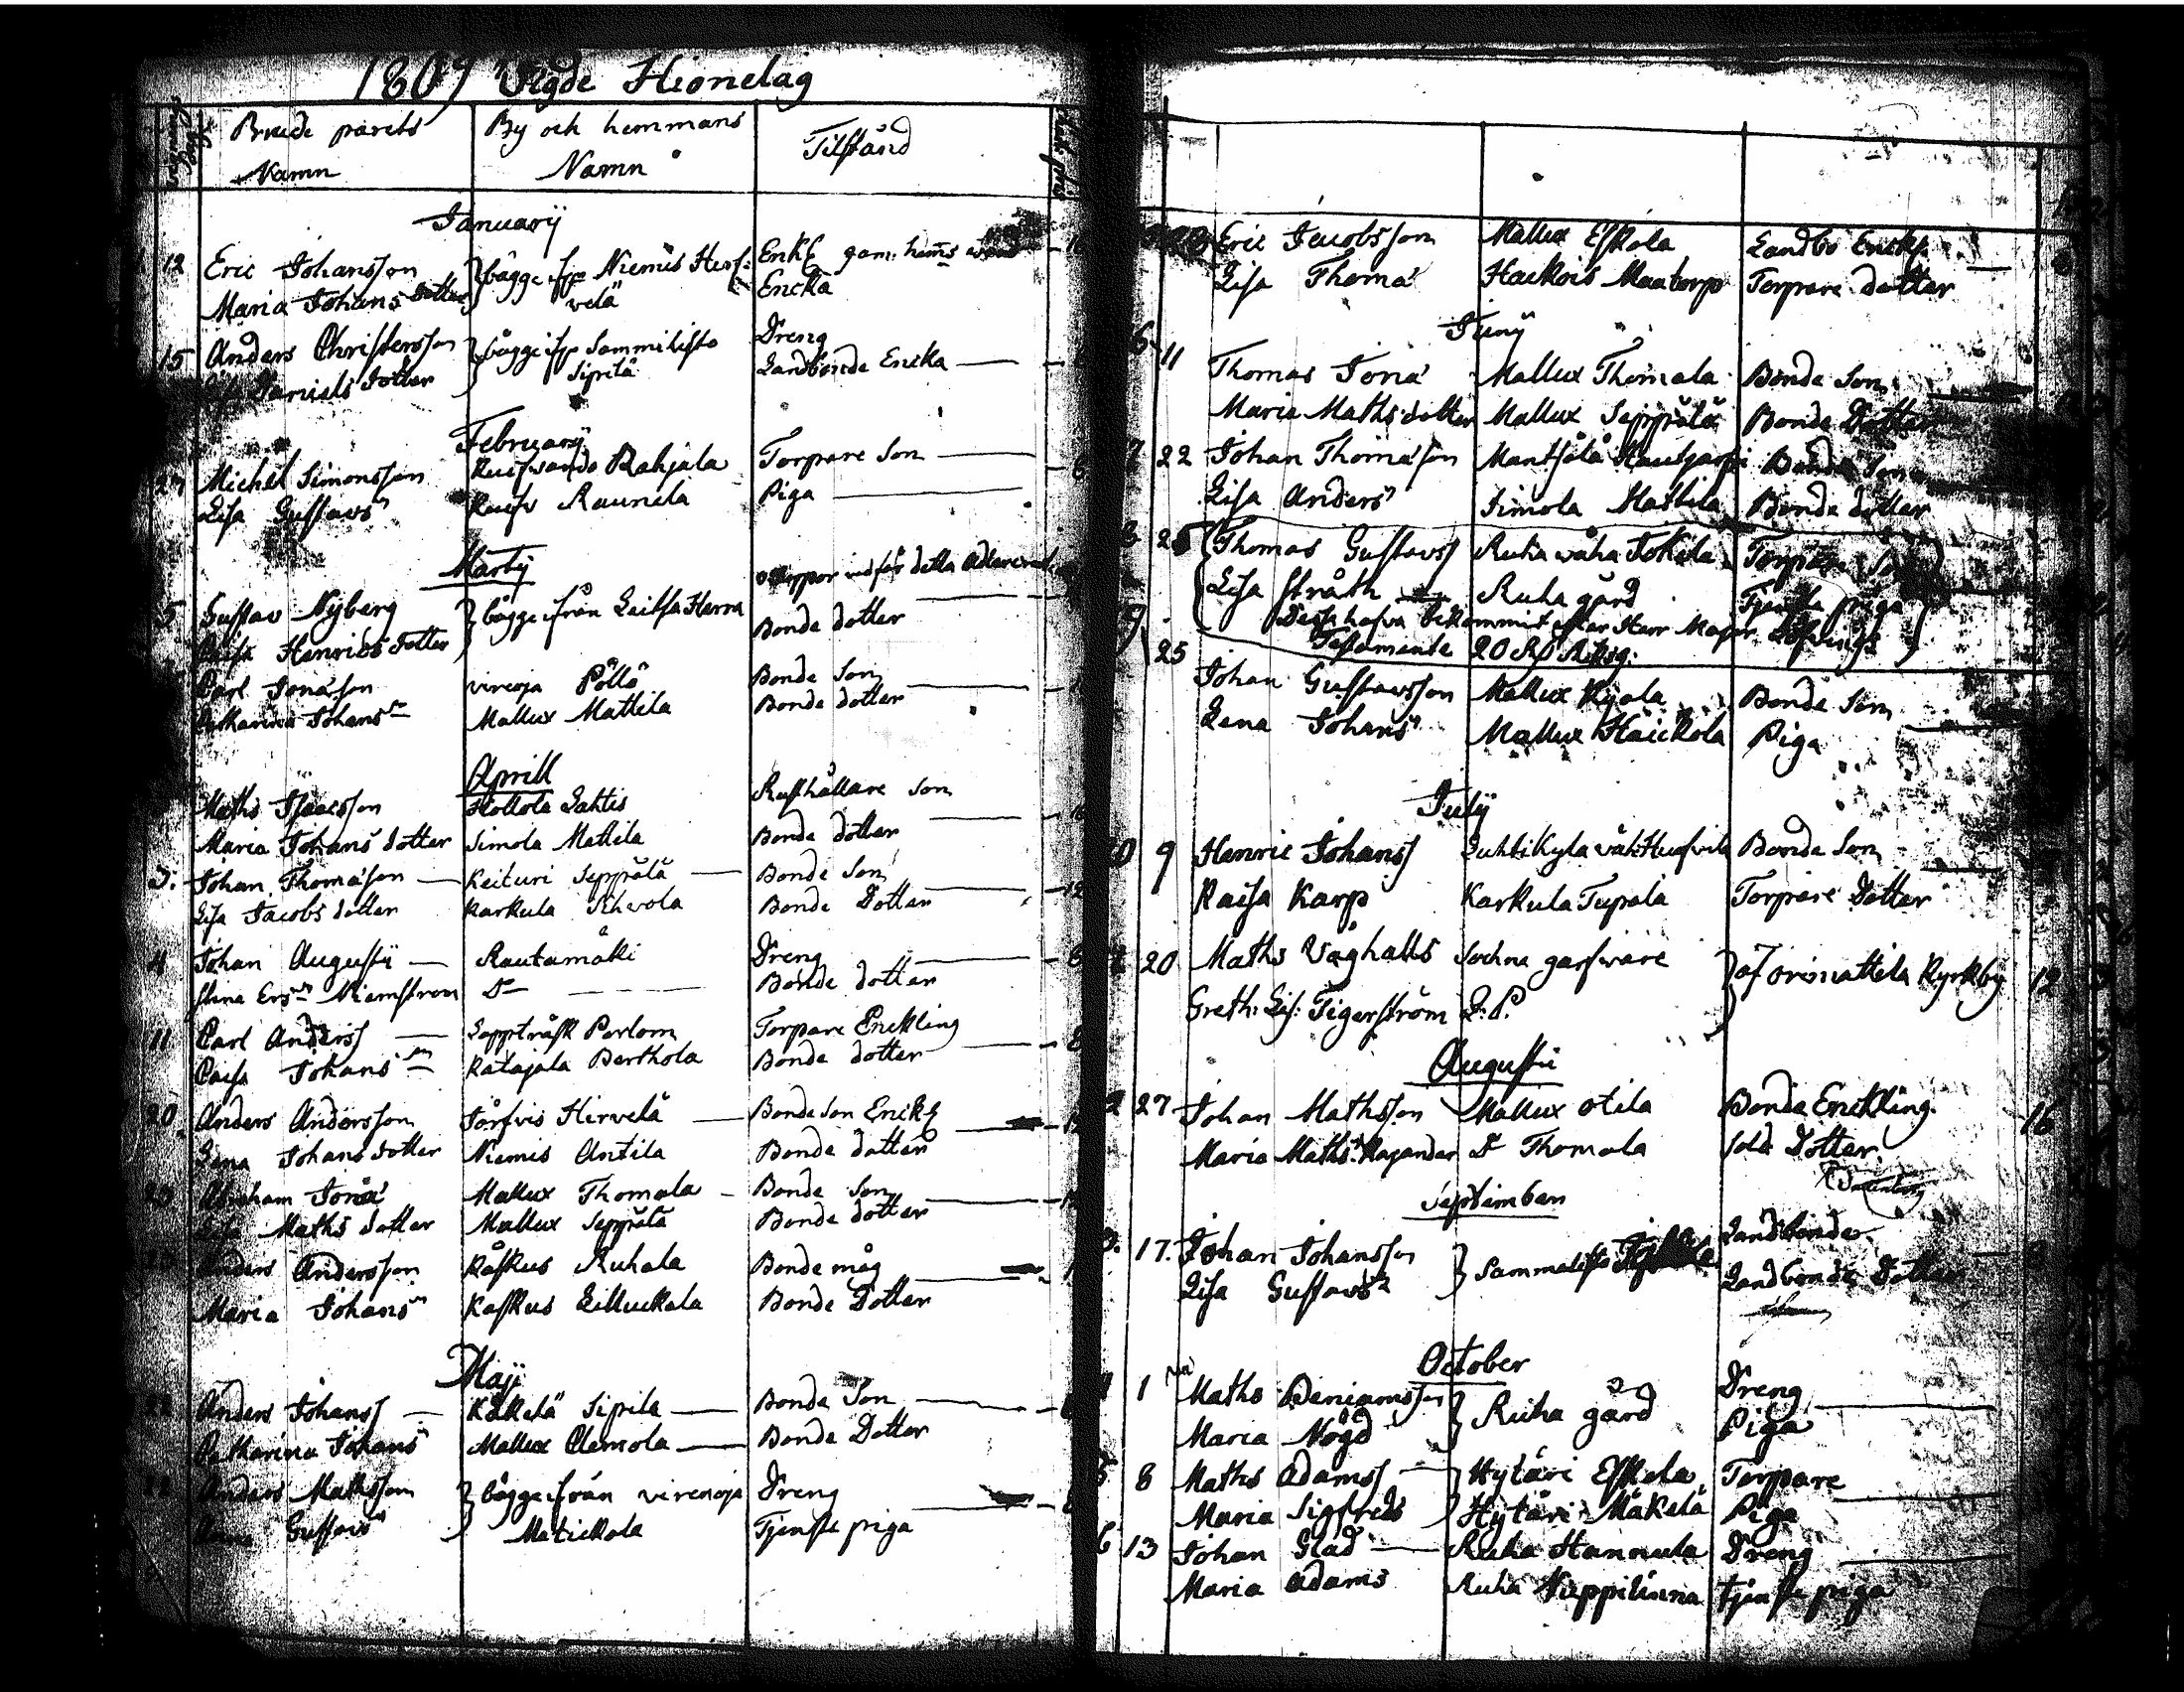 1809 Vigde Hionelag
Brude parets By och hemmans Tilstånd
Namn Namn
January
12 Eric Johansson bägge ifr Niemis Herf: Enkl gam: hems
Maria Johans dotter velä Encka
15 Anders Christersson bägge ifr Sammilisto Dreng
Daniels dotter Sipilä Landbonde Encka
February
27 Michel Simonsson Rahjala Torpare Son 6
Lisa Gustavs Raunela Piga
Marty
5 Gustav Nyberg bägge ifrån Laitsa Harra vid för detta
Caisa Henrics dotter Bonde dotter
Carl Jonason vireoja Pöllö Bonde Son
Catharina Johans Mallux Mattila Bonde dotter
Aprill
Maths Isaacsson Hollola Lahtis Rusthållare Son
Maria Johans dotter Simola Mattila Bonde dotter
3. Johan Thomason Keituri Seppälä Bonde Son 12
Lisa Jacobs dotter Karkula Bonde Dotter
4 Johan Augusti Rautamäki Dreng 8
Stina Ers Niemstrom D Bonde dotter
11 Carl Anderss Lopptråsk Porlom Torpare Enckling 8
Caisa Johans Ratajala Berthola Bonde dotter
20. Anders Andersson Järfvis Hirvelä Bonde Son Enckl
Lena Johans dotter Niemis Antila Bonde dotter
Abraham Jona Mallux Thomola Bonde Son
Lisa Maths dotter Mallux Seppälä Bonde dotter
Anders Andersson Käskus Ruhala Bonde måg
Maria Johans Kaskus Lilluckala Bonde Dotter
Maji
Anders Johanss Käkelä Sipila Bonde Son
Catharina Johans Mallux Clemola Bonde Dotter
Anders Mathsson bägge ifrån virenoja Dreng
Anna Gustavs Matickola Tjenste piga
Eric Jacobsson Mallux Eskola Landbo Enckl.
Lisa Thoma Haekois Maatorp Torpare dotter
Juny
6 11 Thomas Jona Mallux Thomola Bonde Son
Maria Maths dotter Mallux Seppälä Bonde Dotter
7 22 Johan Thomason Mantsälä Hautjarfvi Bonde Son
Lisa Anders Simola Mattila Bonde dotter
8 25 Thomas Gustavss Ruha wäha Jokela Torpare Son
Lisa Stråth Ruha gård Tjensta piga
Dessa hafva bekommit efter Herr Major
Testamente 20 R
9 25 Johan Gustavsson Mallux Kyola Bonde Son
Lena Johans Mallux Häickola Piga
July
10 9 Henric Johanss Luhtikyla Bonde Son
Kaisa Karp Karkula Tupala Torpare Dotter
20 Maths Våghalls Sochne garfware af Orimattila Kyrkby 12
Greth: Lis: Tigerström D. P.
Augusti
2 27 Johan Mathsson Mallux Otila Bonde Enckling. 16
Maria Maths Kajander D Thomola Sold. Dotter
September
3. 17. Johan Johansson Sammalisto Landbonde
Lisa Gustavs Landbonde Dotter
October
4 1 Maths Beniamsson Ruha gård Dreng
Maria Nögd Piga
5 8 Maths Adamss Hytäri Eskola Torpare
Maria Sigfreds Hytäri Mäkelä Piga
6 13 Johan Glad Ruha Hannula Dreng
Maria Adams Ruha Nuppilinna tjenste piga